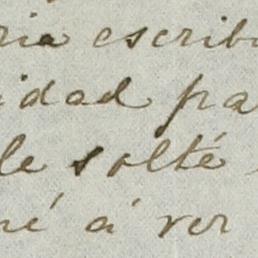 ria escribi
idad pa
le solté
né á ver